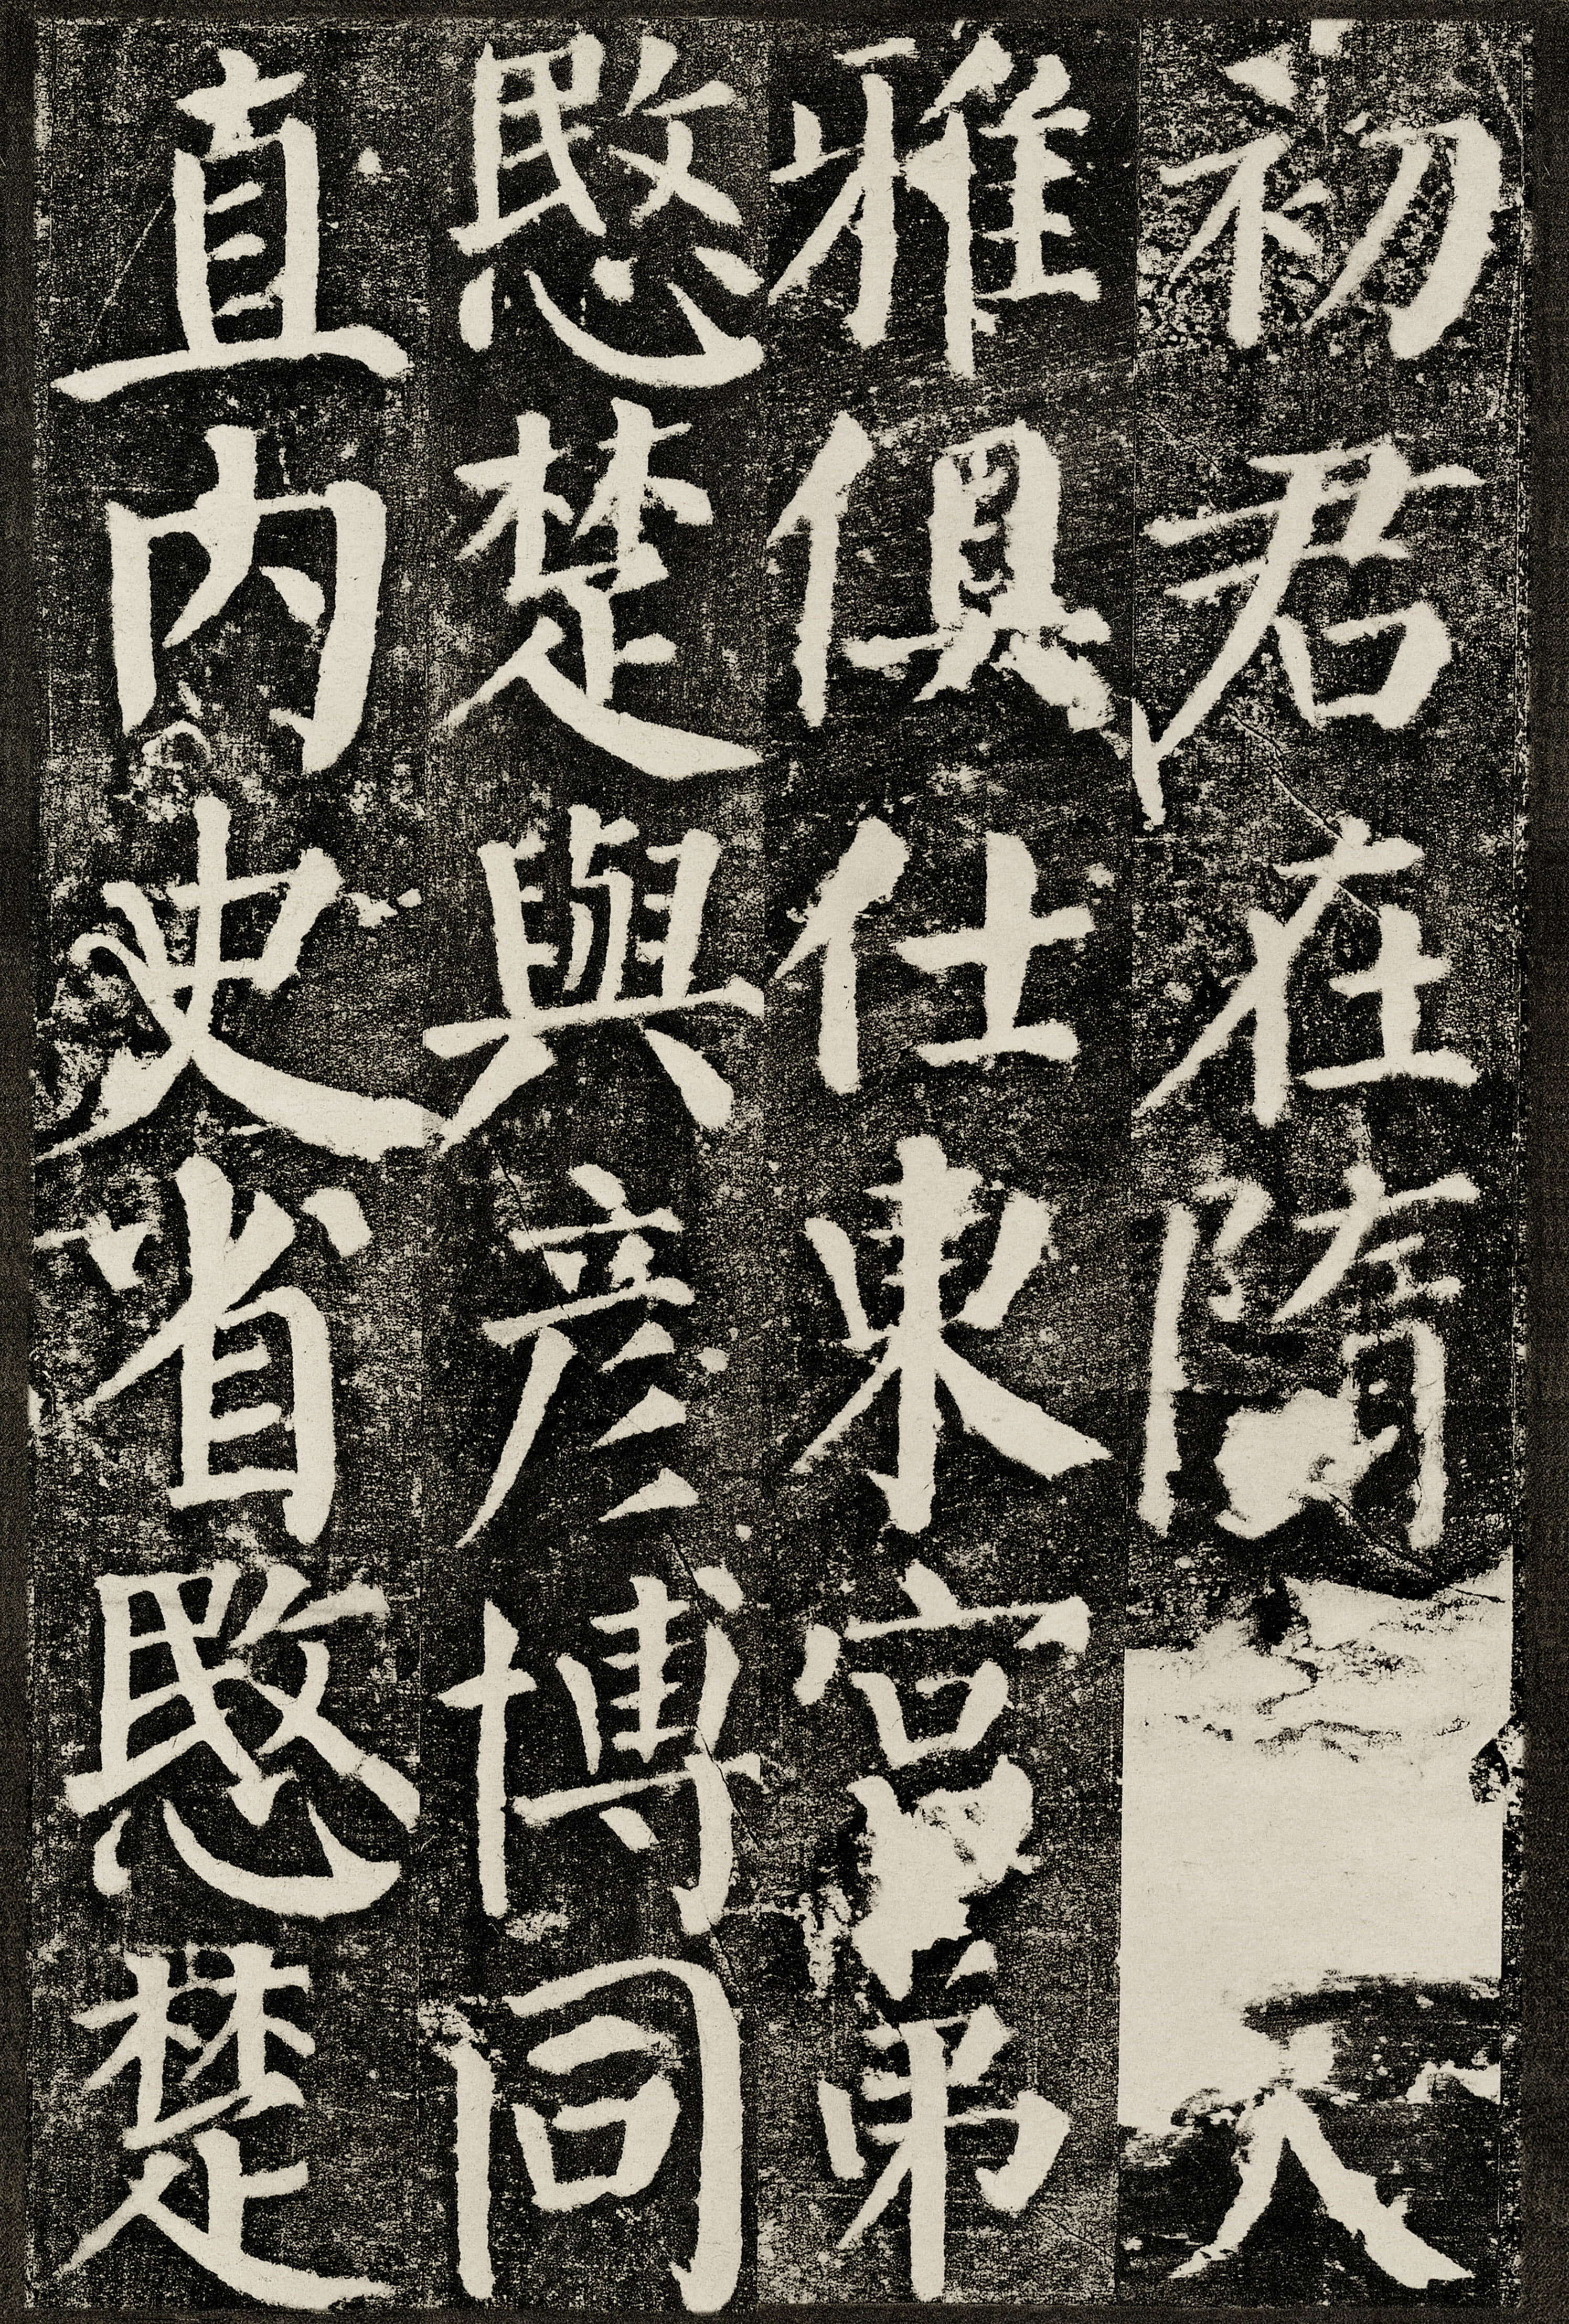 初君在隋大
雅俱仕東宮弟
愍楚與彥博同
直内史省愍楚